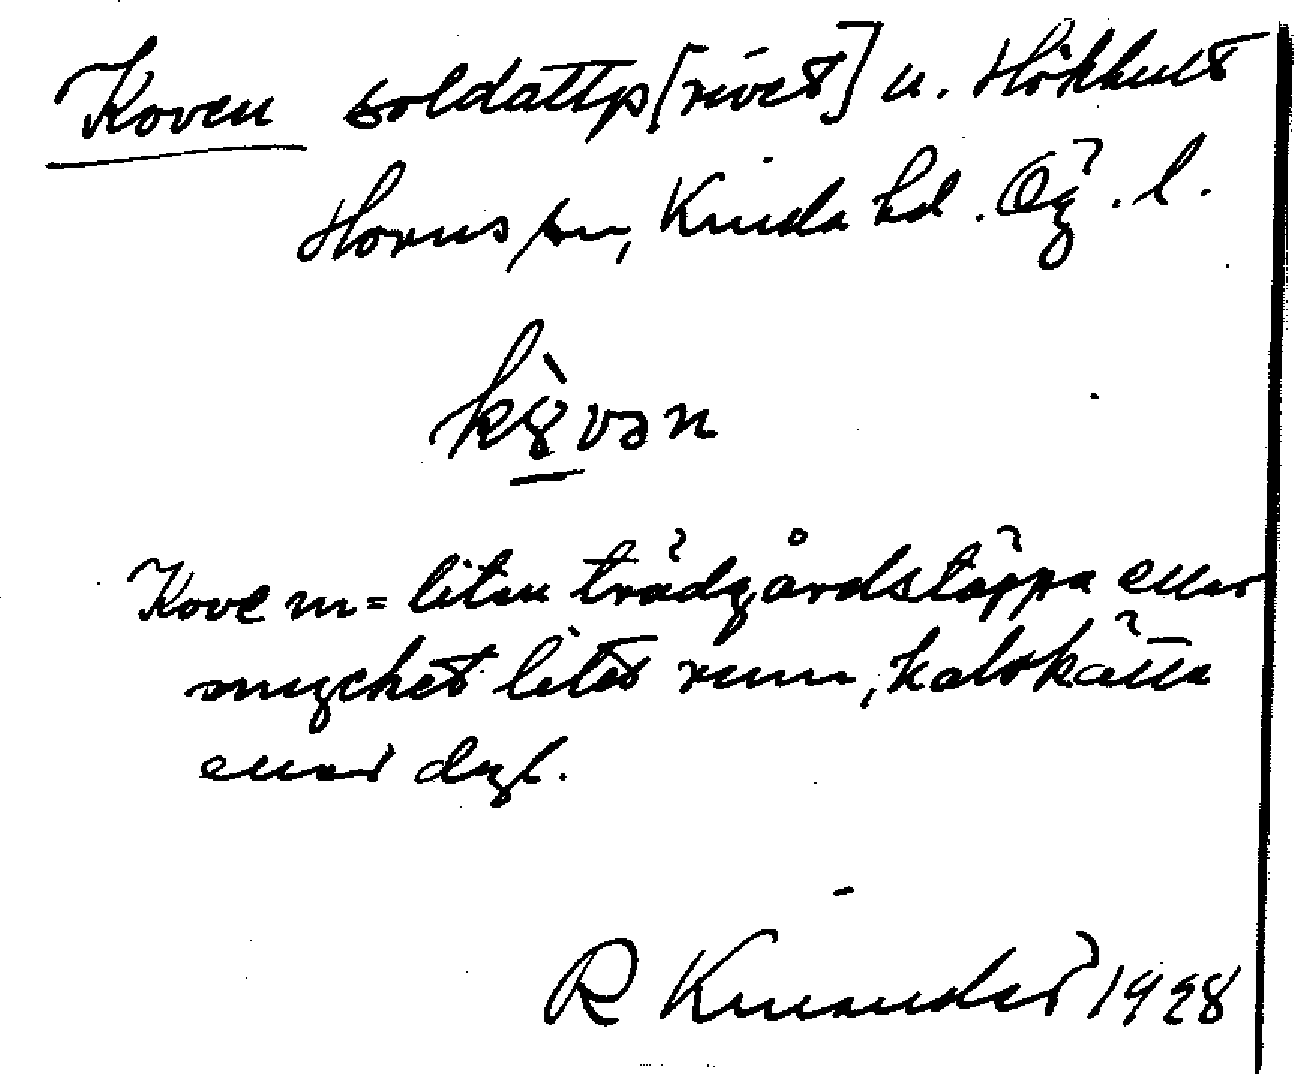 Koven soldattp[rivet] u. Hökhult
Horns sn, Kinda hd. Ög. l.
kȣ̀vən
Kove m = liten trädgårdstäppa eller
mycket litet rum, kalvkätte
eller dyl.
R Kinander 1928